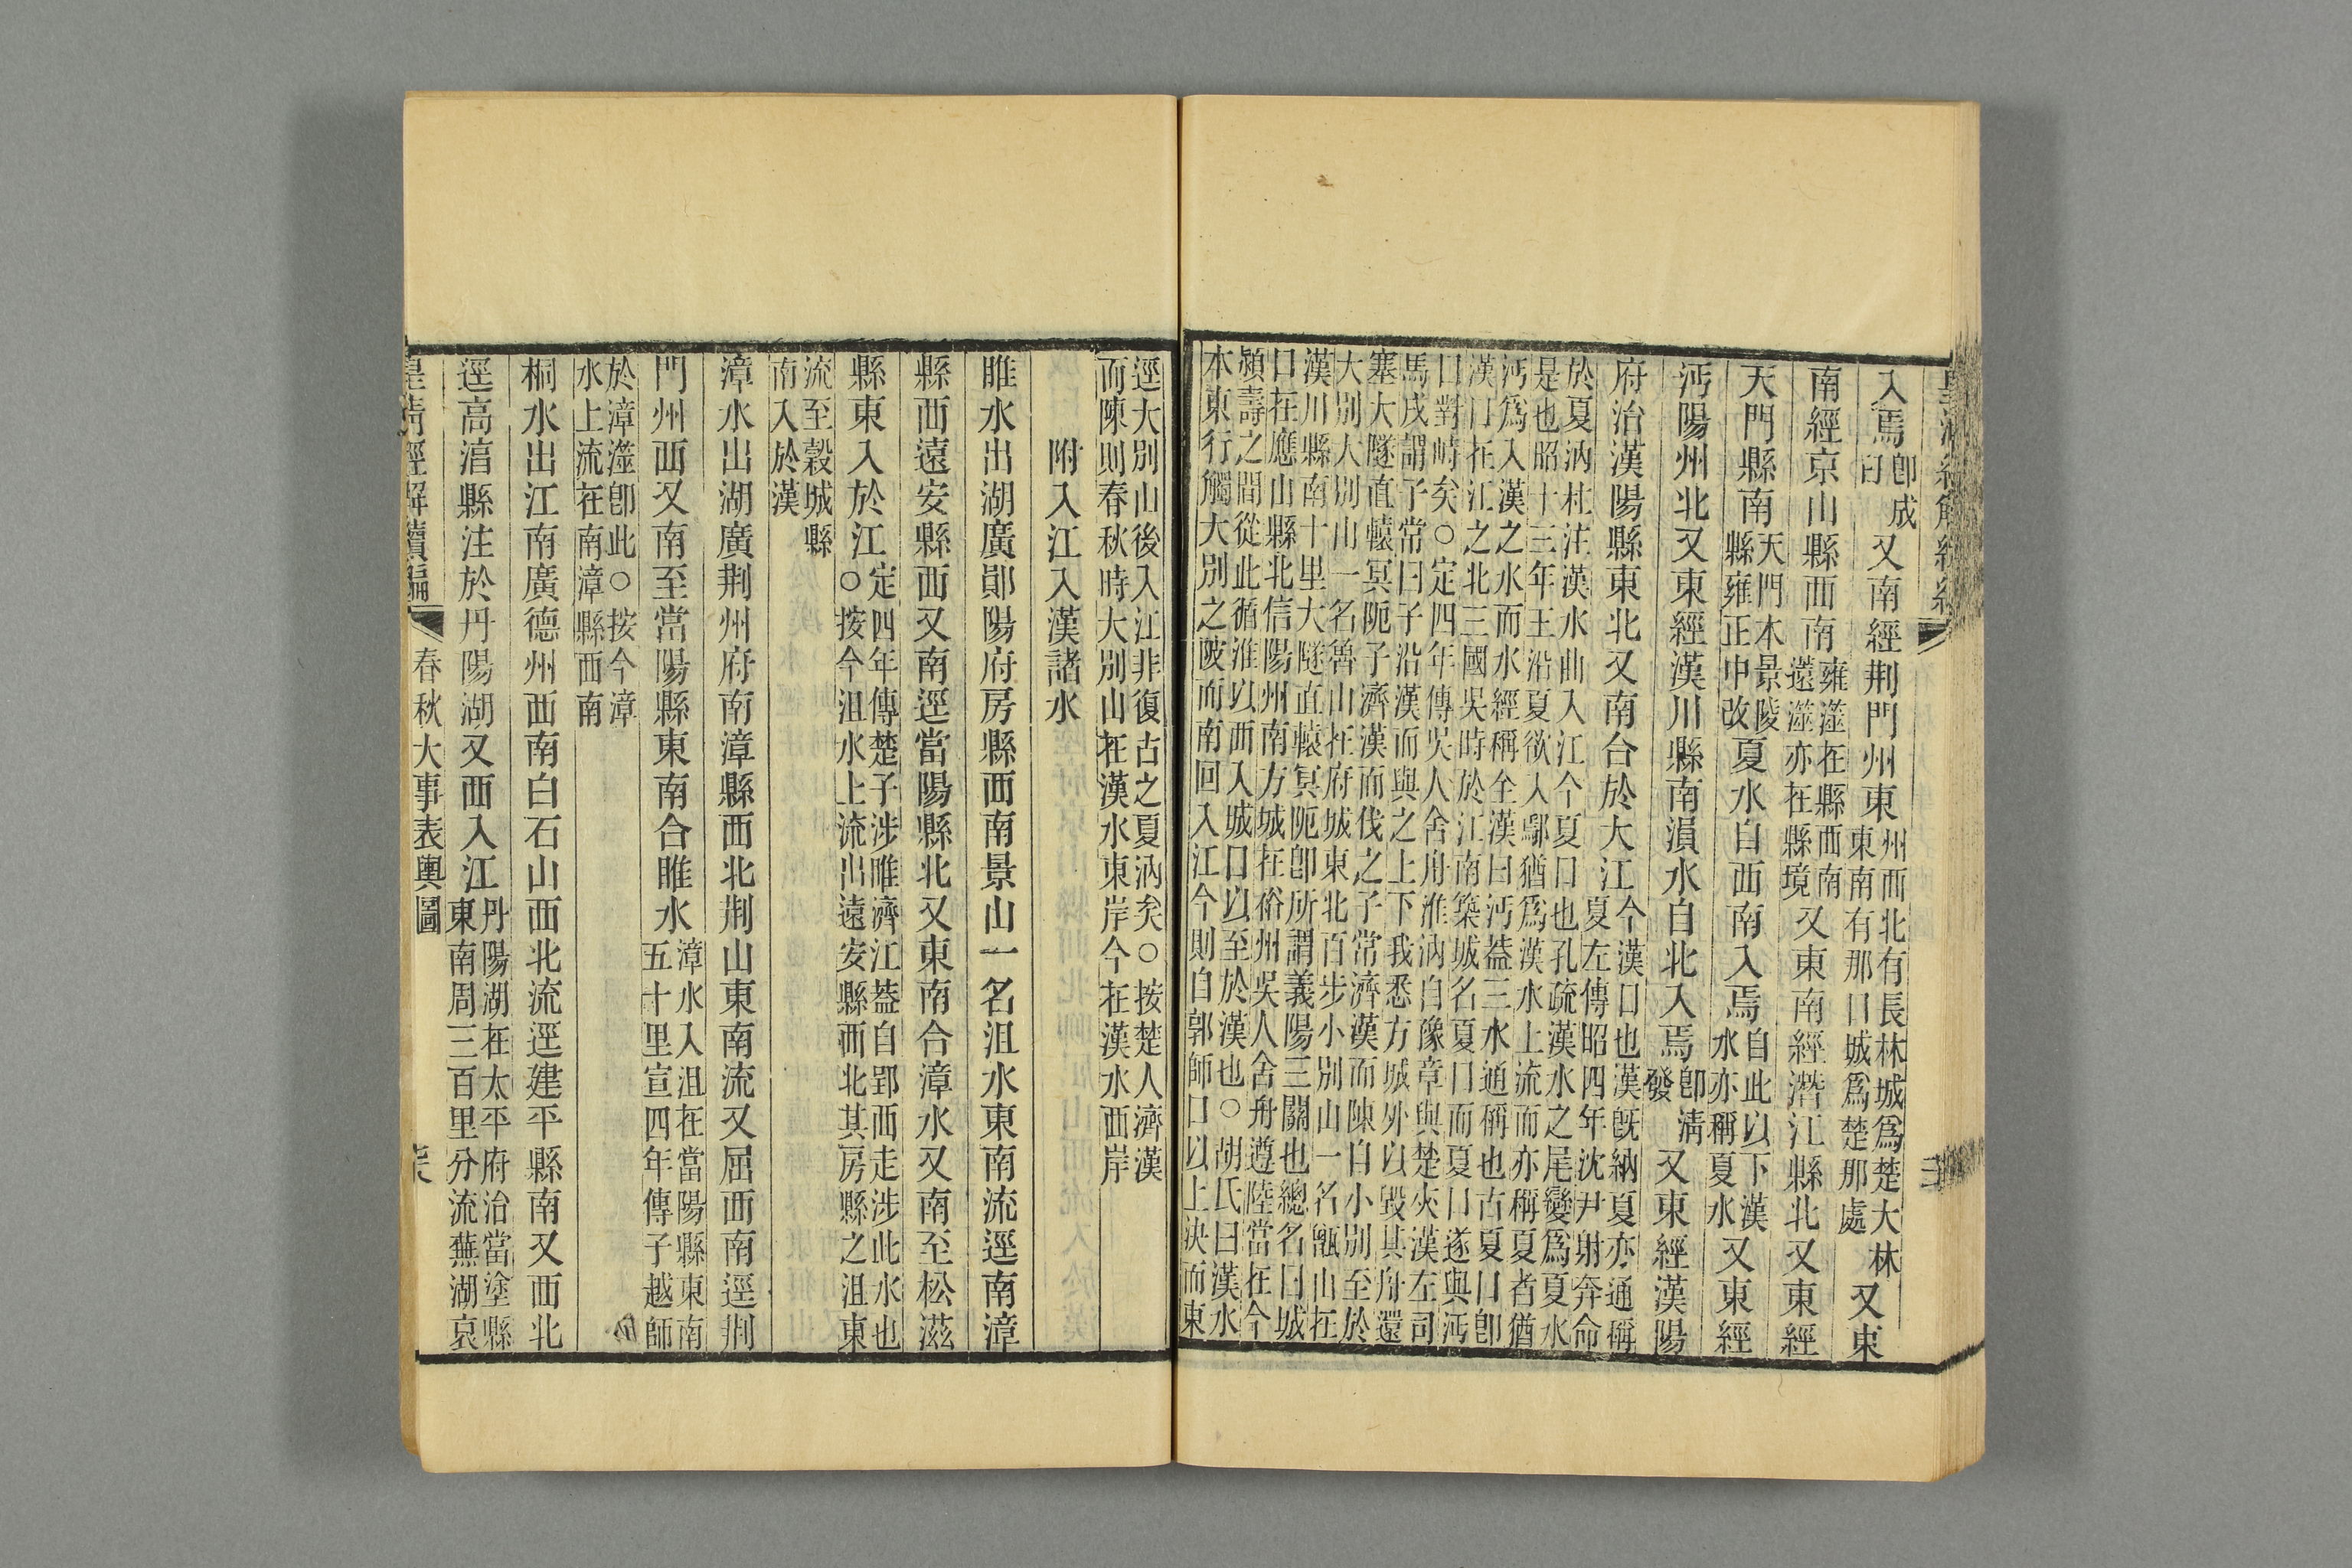 入焉卽成臼又南經荆門州東州西北有長林城爲楚大林東南有那口城爲楚那處又東
南經京山縣西南雍澨在縣西南薳澨亦在縣境又東南經潛江縣北又東經
天門縣南天門本景陵縣雍正中改夏水自西南入焉自此以下漢水亦稱夏水又東經
沔陽州北又東經漢川縣南溳水自北入焉卽淸發又東經漢陽
府治漢陽縣東北又南合於大江今漢口也漢旣納夏亦通稱夏左傳昭四年沈尹射奔命
於夏汭杜注漢水曲入江今夏口也孔疏漢水之尾變爲夏水
是也昭十三年王沿夏欲入鄢猶爲漢水上流而亦稱夏者猶
沔爲入漢之水而水經稱全漢曰沔葢三水通稱也古夏口卽
漢口在江之北三國吳時於江南築城名夏口而夏口遂與沔
口對峙矣○定四年傳吳人舍舟淮汭自豫章與楚夾漢左司
馬戌謂子常曰子沿漢而與之上下我悉方城外以毀其舟還
塞大隧直轅冥阨子濟漢而伐之子常濟漢而陳自小別至於
大別大別山一名魯山在府城東北百步小別山一名甑山在
漢川縣南十里大隧直轅冥阨卽所謂義陽三關也總名曰城
口在應山縣北信陽州南方城在裕州吳人舍舟遵陸當在今
潁壽之間從此循淮以西入城口以至於漢也○胡氏曰漢水
本東行觸大別之陂而南回入江今則自郭師口以上決而東
逕大別山後入江非復古之夏汭矣○按楚人濟漢
而陳則春秋時大別山在漢水東岸今在漢水西岸
附入江入漢諸水
睢水出湖廣鄖陽府房縣西南景山一名沮水東南流逕南漳
縣西遠安縣西又南逕當陽縣北又東南合漳水又南至松滋
縣東入於江定四年傳楚子涉睢濟江葢自郢西走涉此水也○按今沮水上流出遠安縣西北其房縣之沮東
流至穀城縣南入於漢
漳水出湖廣荆州府南漳縣西北荆山東南流又屈西南逕荆
門州西又南至當陽縣東南合睢水漳水入沮在當陽縣東南五十里宣四年傳子越師
於漳澨卽此○按今漳水上流在南漳縣西南
桐水出江南廣德州西南白石山西北流逕建平縣南又西北
逕高淯縣注於丹陽湖又西入江丹陽湖在太平府治當塗縣東南周三百里分流蕪湖哀
皇淸經解續編
春秋大事表輿圖